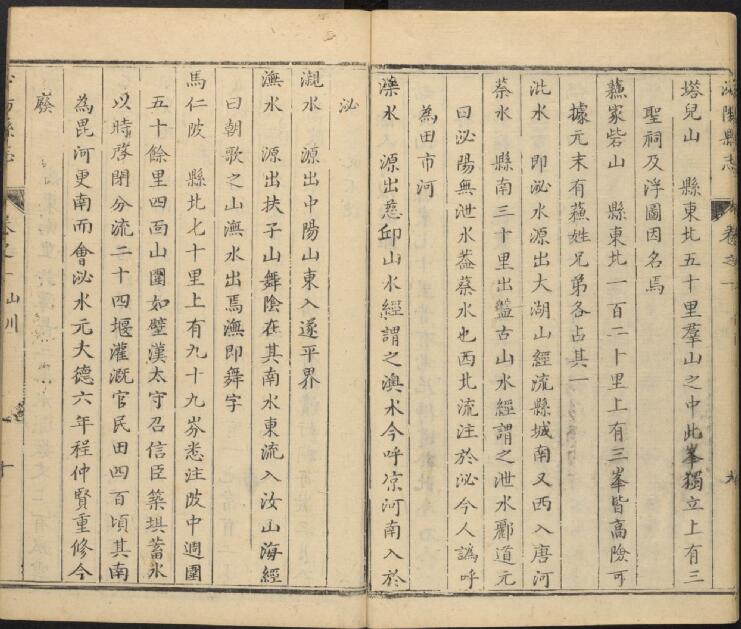 泌陽縣志 卷之一 九
塔兒山 縣東北五十里羣山之中此峯獨立上有三
聖祠及浮圖因名焉
蘓家砦山 縣東北一百二十里上有三峯皆高險可
據元末有蘓姓兄弟各占其一
泚水 即泌水源出大湖山經流縣城南又西入唐河
蔡水 縣南三十里出盤古山水經謂之泄水酈道元
曰泌陽無泄水葢蔡水也西北流注於泌今人譌呼
為田市河
濼水 源出慈邱山水經謂之澳水今呼凉河南入於
泌
瀙水 源出中陽山東入遂平界
潕水 源出扶子山舞陰在其南水東流入汝山海經
曰朝歌之山潕水出焉潕即舞字
馬仁陂 縣北七十里上有九十九岕悉注陂中週圍
五十餘里四面山圍如壁漢太守召信臣築埧蓄水
以時啓閉分流二十四堰灌溉官民田四百頃其南
為毘河更南而會泌水元大德六年程仲賢重修今
廢
卷之一 山川 十